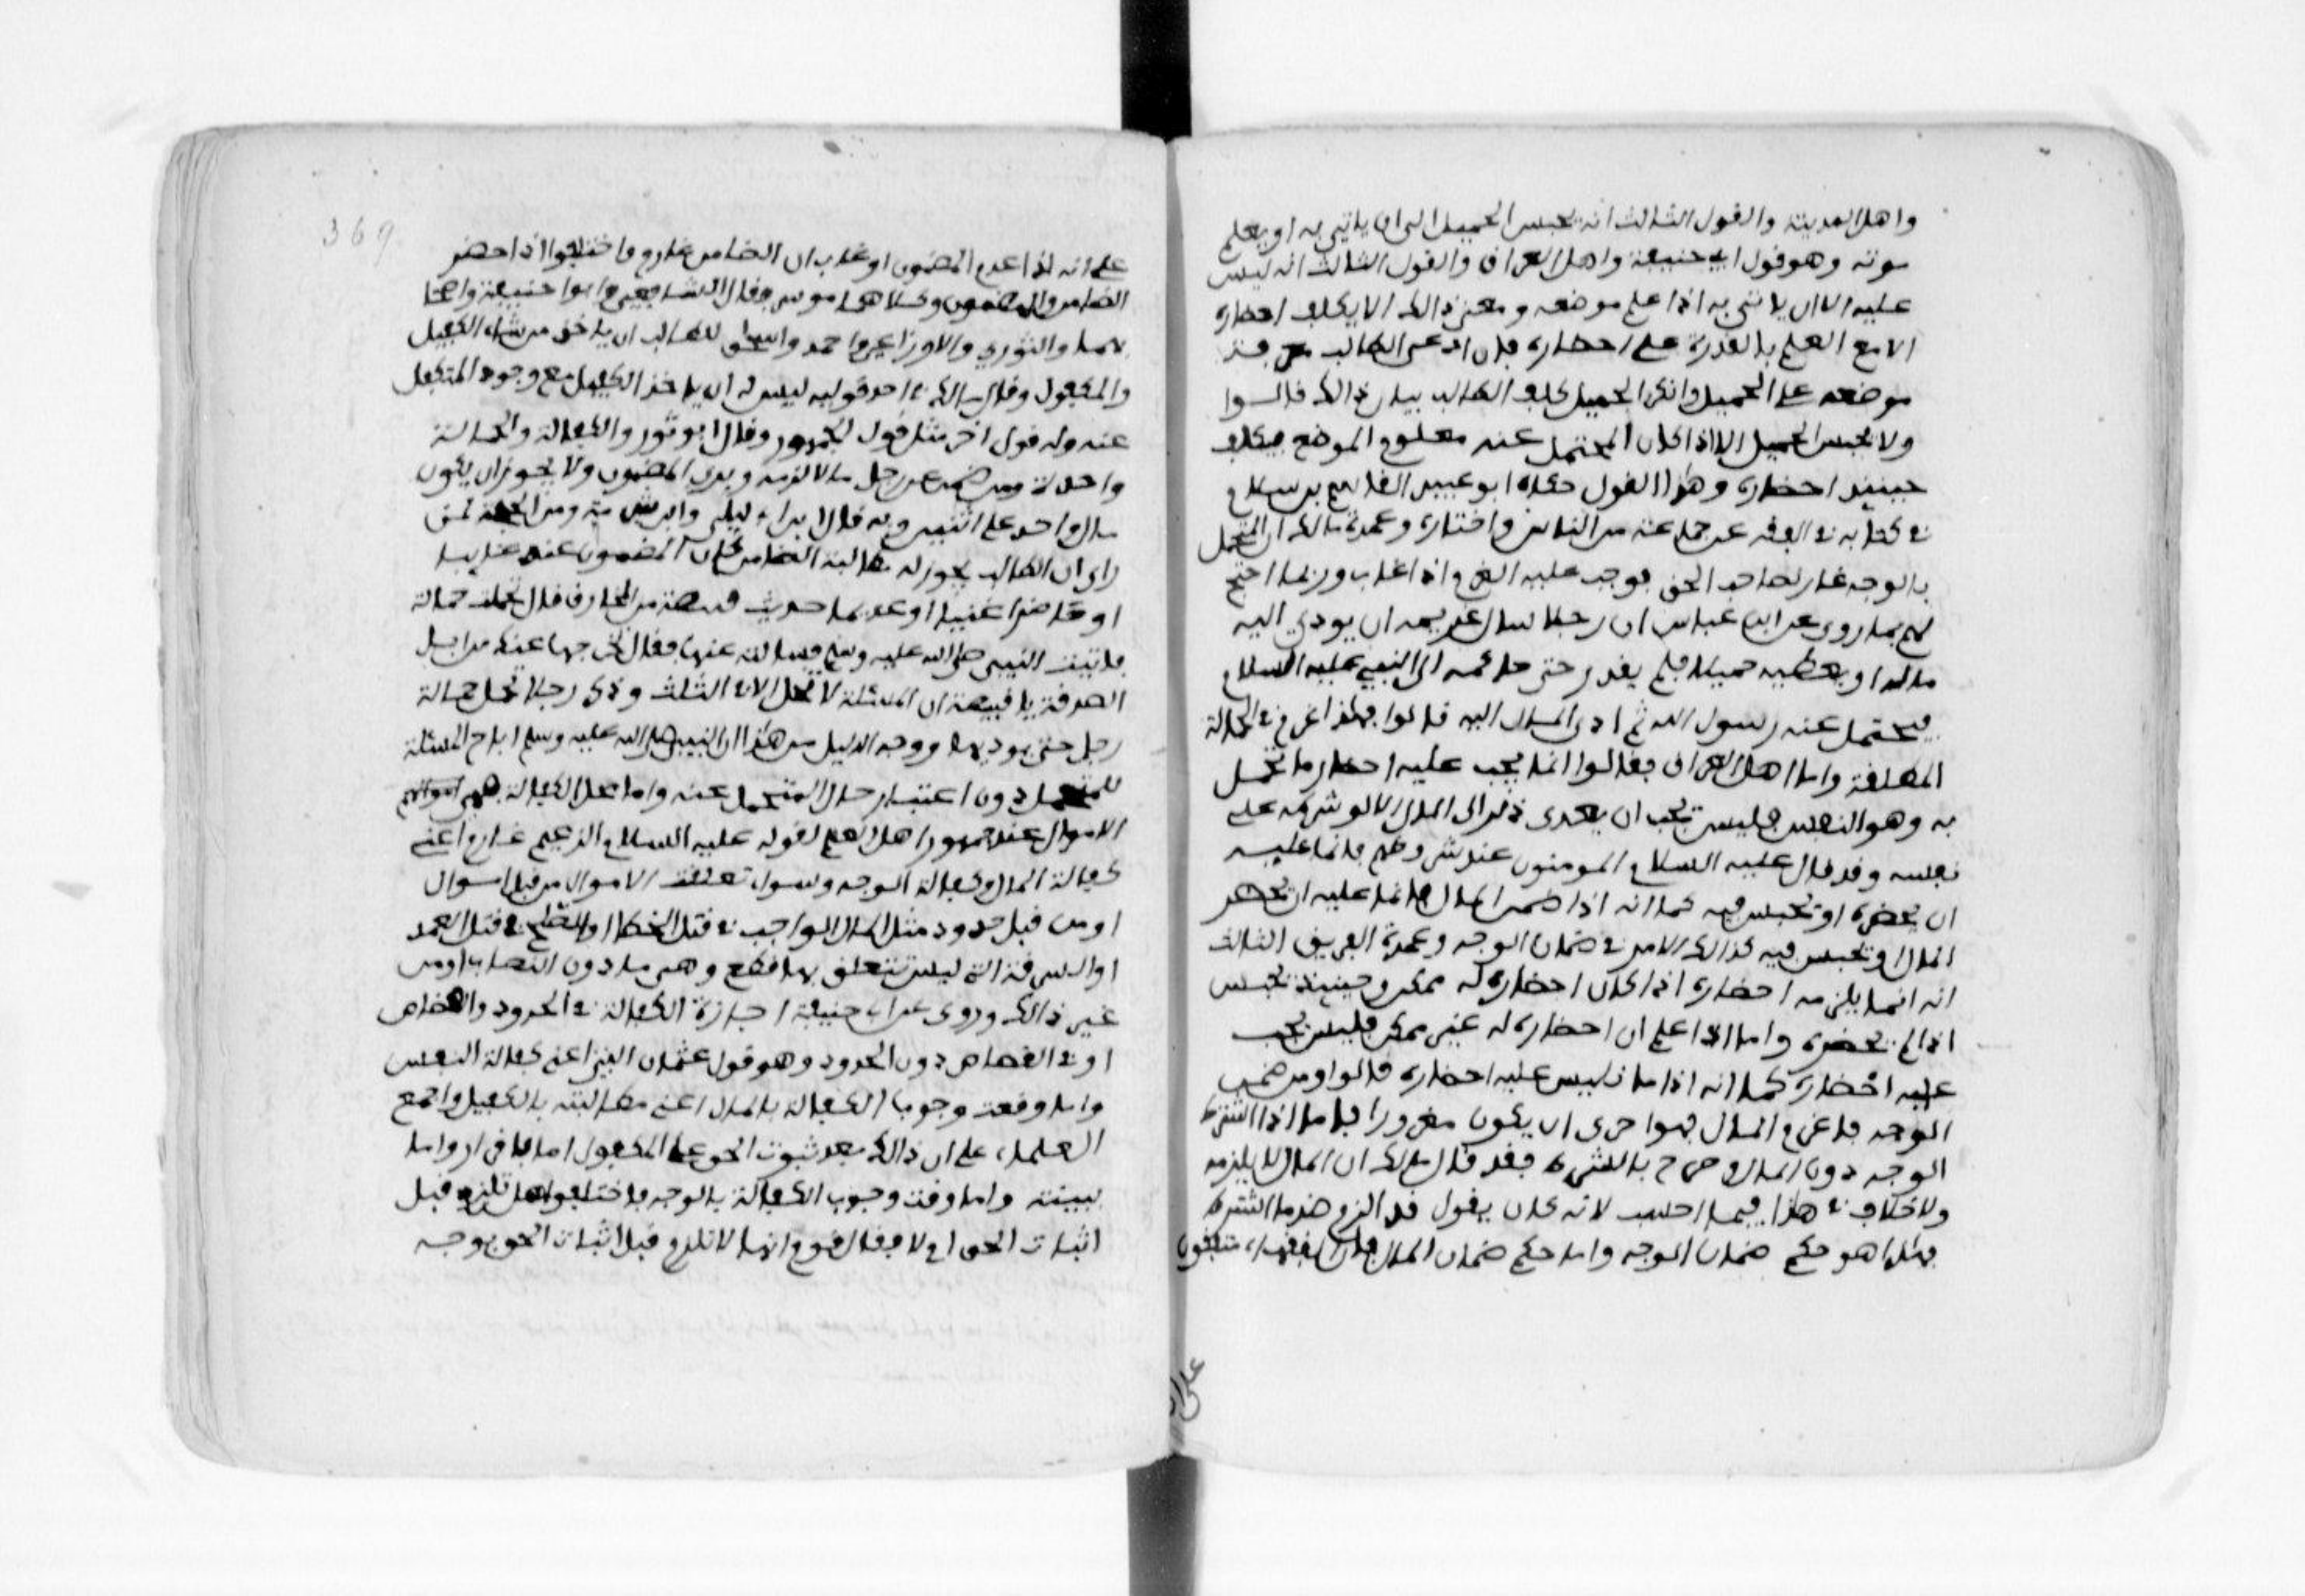 واهل المدينة والقول الثالث انه يحبس الحميل الى ان ياتي به او يعلم
موته وهو قول ابي حنيفة واهل العراق والقول الثالث انه ليس
عليه الا ان ياتي به اذا علم موضعه ومعنى ذالك الا يكلف احضاره
الا مع العلم بالقدرة على احضاره فان ادعى الطالب معرفة
موضعه على الحميل وانكر الحميل كلف الطالب بيان ذالك قالوا
ولا يحبس الحميل الا اذا كان المحتمل عنه معلوم الموضع فيكلف
حينئذ احضاره وهذا القول حكاه ابو عبيد القاسم بن سلام
في كتابه في الفقه عن جماعة من الناس واختاره وعمدة مالك ان المتحمل
بالوجه غار لصاحب الحق فوجب عليه الغرم اذا غاب وربما احتج
لهم بما روي عن ابن عباس ان رجلا سال غريمه ان يودي اليه
ماله او يعطيه حميلا فلم يقدر حتى حاكمه الى النبي عليه السلام
فتحمل عنه رسول الله ثم ادى المال اليه قالوا فهذا غرم في الحمالة
المطلقة واما اهل العراق فقالوا انما يجب عليه احضار ما تحمل
به وهو النفس فليس يجب ان يعدى ذلك الى المال الا لو شرطه على
نفسه وقد قال عليه السلام المومنون عند شروطهم فانما عليه
ان يحضره او يحبس فيه كما انه اذا ضمن المال فانما عليه ان يحضر
المال او يحبس فيه كذالك الامر في ضمان الوجه وعمدة الفريق الثالث
انه انما يلزمه احضاره اذا كان احضاره له ممكن وحينئذ يحبس
اذا لم يحضره واما اذا علم ان احضاره له غير ممكن فليس يجب
عليه احضاره كما انه اذا مات ليس عليه احضاره قالوا ومن ضمن
الوجه فاغرم المال فهو احرى ان يكون مغرورا فاما اذا اشترط
الوجه دون المال وصرح بالشرط فقد قال مالك ان المال لا يلزمه
ولا خلاف في هذا فيما احسب لانه كان يقول قد الزم ضد ما اشترط
فهذا هو حكم ضمان الوجه واما حكم ضمان المال فان الفقهاء متفقون
369
على انه اذا عدم المضمون او غاب ان الضامن غارم واختلفوا اذا حضر
الضامن والمضمون وكلاهما موسر فقال الشافعي وابو حنيفة واصحا
بهما والثوري والاوزاعي واحمد واسحق للطالب ان ياخذ من شاء الكفيل
والمكفول وقال مالك في احد قوليه ليس له ان ياخذ الكفيل مع وجود المتكفل
عنه وله قول اخر مثل قول الجمهور وقال ابو ثور والكفالة والحمالة
واحدة ومن ضمن عن رجل مالا لزمه وبري المضمون ولا يجوز ان يكون
مال واحد على اثنين وبه قال ابن ابي ليلى وابن شبرمة ومن الحجة لمن
راى ان الطالب يجوز له مطالبة الضامن كان المضمون عنه غايبا
او حاضرا غنيا او عديما حديث قبيصة من المخارق قال تحملت حمالة
فاتيت النبي صلى الله عليه وسلم فسالته عنها فقال نخرجها عنك من ابل
الصدقة يا قبيصة ان المسئلة لا تحل الا في الثلث وذكر رجلا تحمل حمالة
رجل حتى يوديها ووجه الدليل من هذا ان النبي صلى الله عليه وسلم اباح المسئلة
للمتحمل دون اعتبار حال المتحمل عنه واما محل الكفالة فهي
الاموال عند جمهور اهل العلم لقوله عليه السلام الزعيم غارم اعني
كفالة المال وكفالة الوجه وسواء تعلقت الاموال من قبل اموال
او من قبل حدود مثل المال الواجب في قتل الخطا او الصلح في قتل العمد
او السرقة التي ليس يتعلق بها قطع وهي ما دون النصاب او من
غير ذالك وروي عن ابي حنيفة اجازة الكفالة في الحدود والقصاص
او في القصاص دون الحدود وهو قول عثمان البتي اعني كفالة النفس
واما وقعت وجوب الكفالة بالمال اعني مطالبته بالكفيل واجمع
العلماء على ان ذالك بعد ثبوت الحق على المكفول اما باقرار واما
ببينة واما وقت وجوب الكفالة بالوجه فاختلفوا هل تلزم قبل
اثبات الحق ام لا فقال قوم انها لا تلزم قبل اثبات الحق بوجه